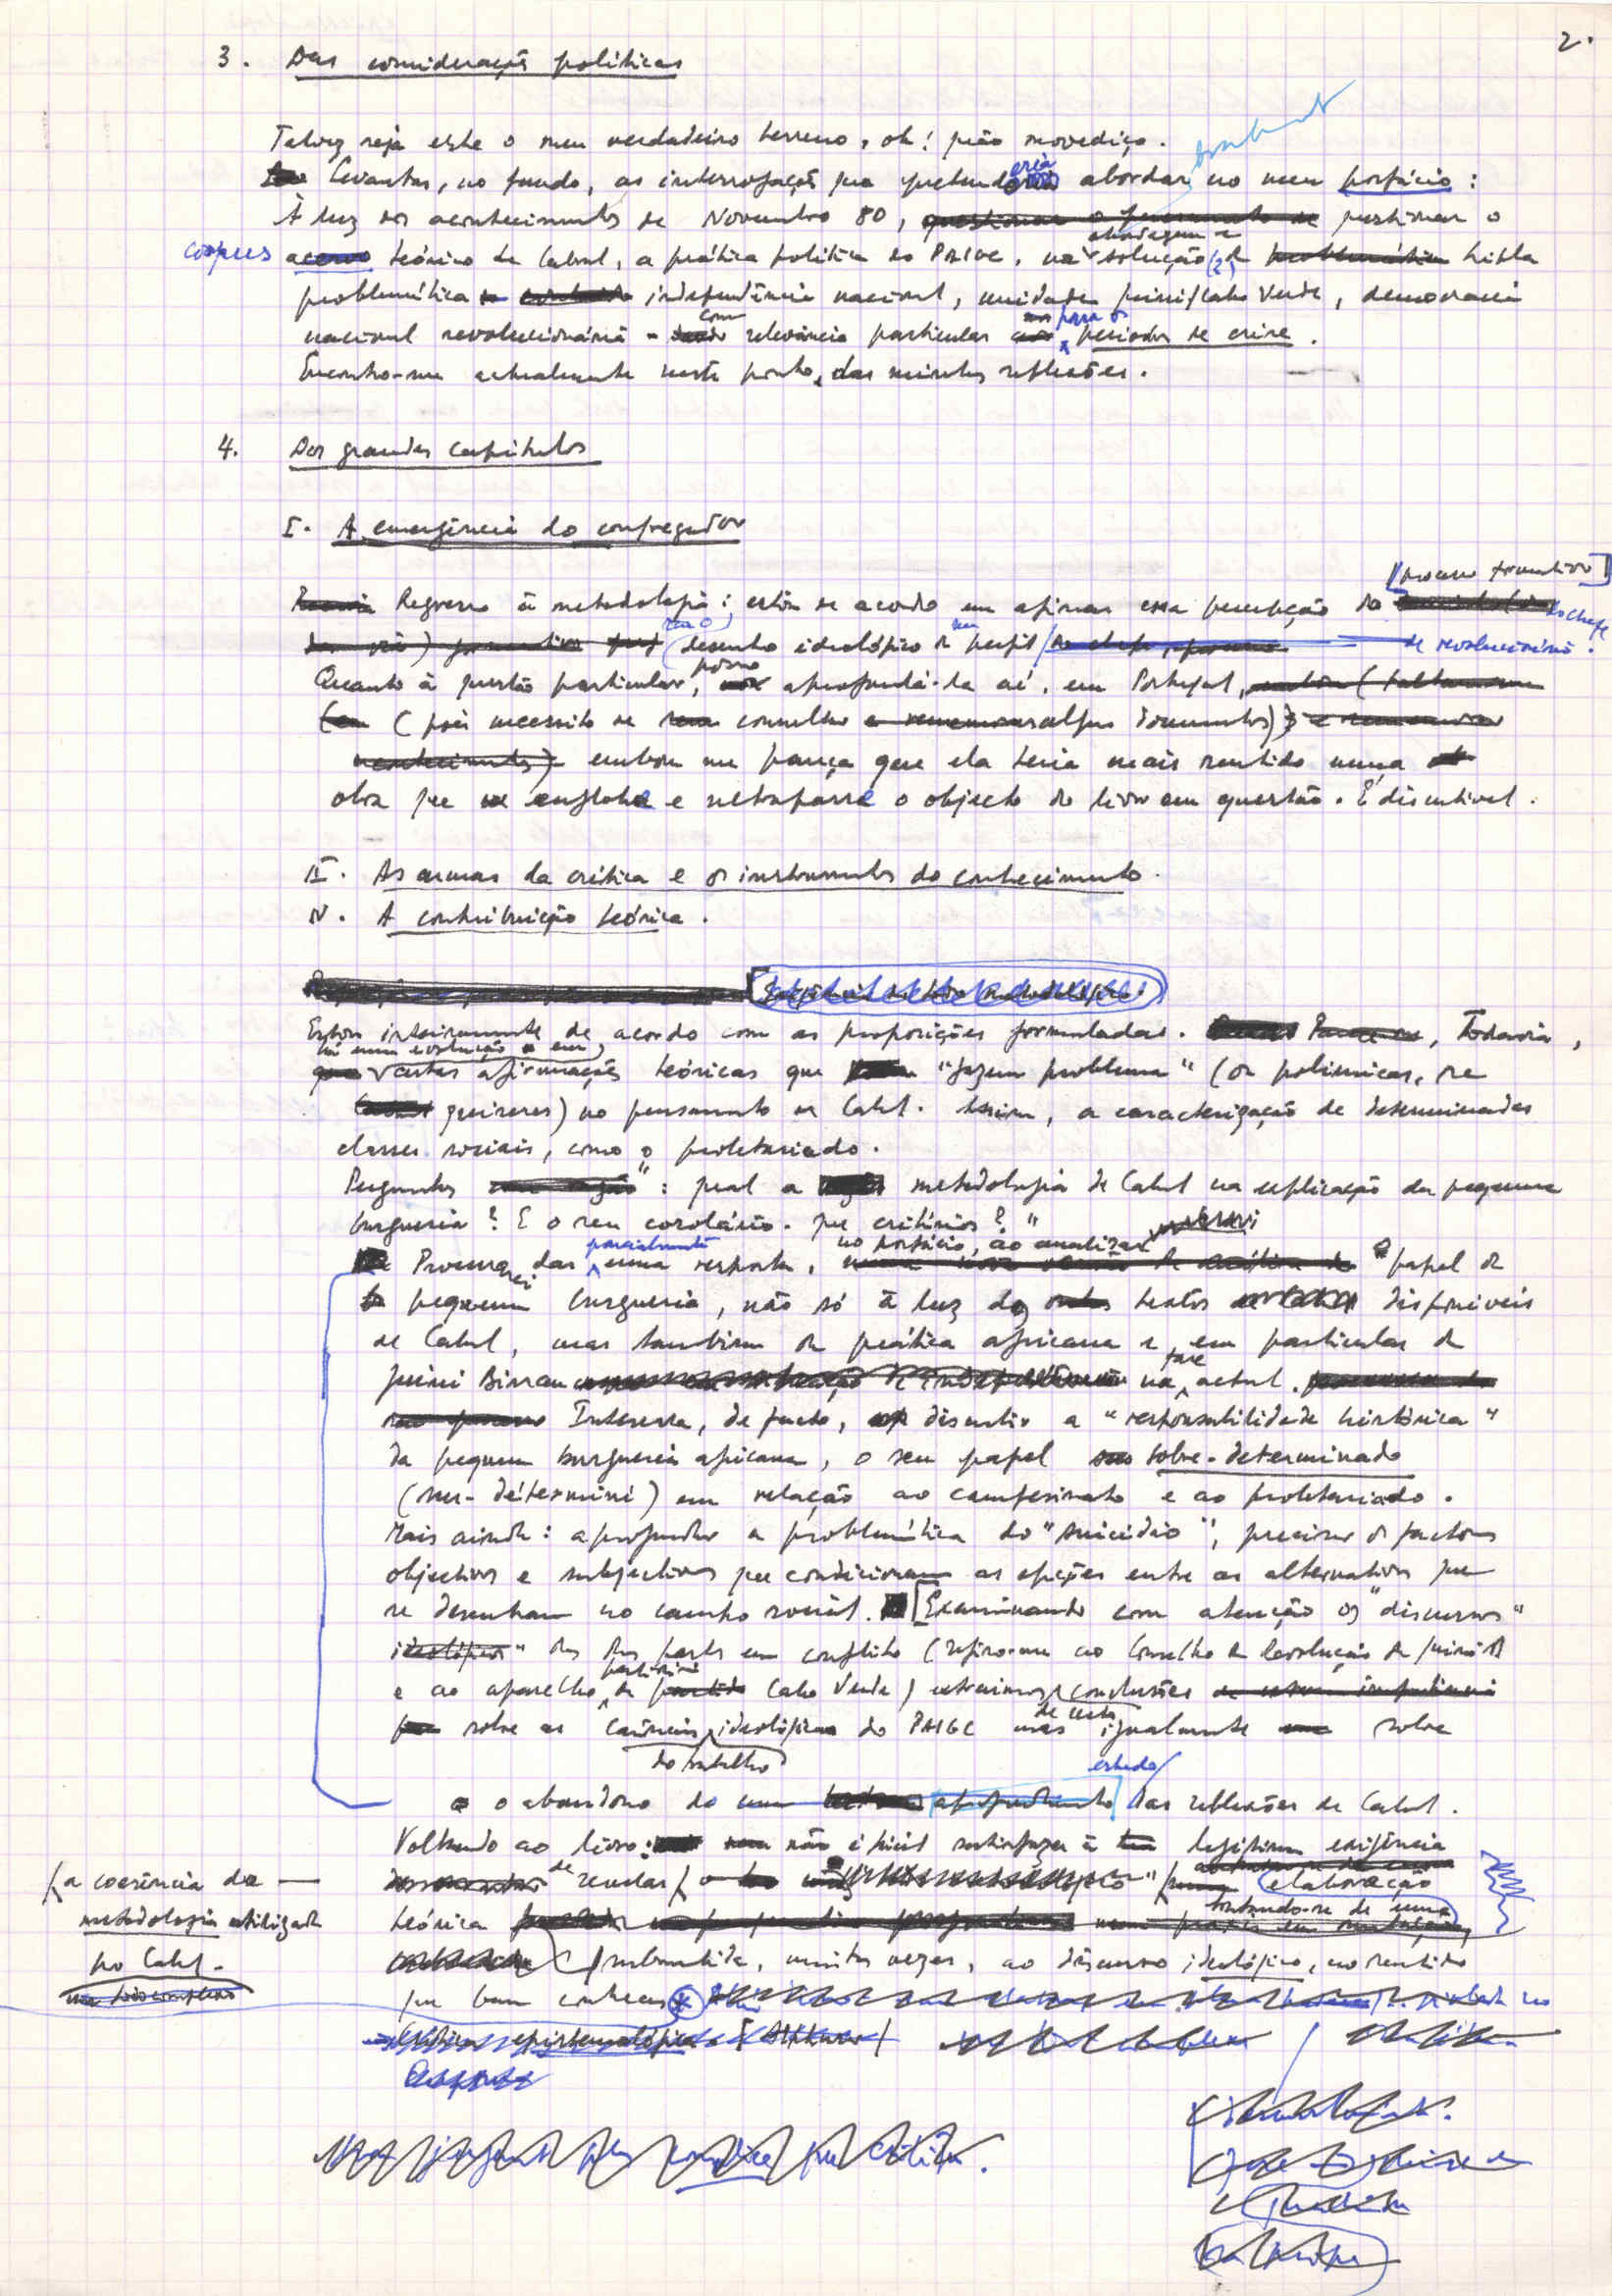 2.
3. Das considerações políticas
Talvez seja este o meu verdadeiro terreno, oh! quão movediço.
Levantas, no fundo, as interrogações que pretenderia abordar no meu posfácio:
À luz dos acontecimentos de Novembro 80, questionar o
corpus teórico de Cabral, a prática política do PAIGC, na abordagem e solução (?) da tripla
problemática independência nacional, unidade Guiné/Cabo Verde, democracia
nacional revolucionária - com relevância particular para os períodos de crise.
Encontro-me actualmente neste ponto das minhas reflexões.
4. Dos grandes capítulos
I. A emergência do congregador
[processo formativo]
Regresso à metodologia: estou de acordo em afinar essa percepção do do chefe
desenho ideológico do seu perfil de revolucionário.
Quanto à questão particular, posso aprofundá-la aí, em Portugal,
(pois necessito de consulta alguns documentos)
embora me pareça que ela teria mais sentido numa
obra que englobe e ultrapasse o objecto do livro em questão. É discutível.
II. As armas da crítica e os instrumentos do conhecimento.
IV. A contribuição teórica.
Estou inteiramente de acordo com as proposições formuladas. Todavia,
há uma evolução em
certas afirmações teóricas que "fazem problema" (ou polémicas, se
quiseres) no pensamento de Cabral. Assim, a caracterização de determinadas
classes sociais, como o proletariado.
Perguntas: "qual a metodologia de Cabral na explicação da pequena
burguesia? E o seu corolário. Que critérios?"
Procurarei dar parcialmente uma resposta, no posfácio, ao analisar o papel da
pequena burguesia, não só à luz dos textos disponíveis
de Cabral, mas também da prática africana e em particular da
Guiné Bissau na fase actual.
Interessa, de facto, discutir a "responsabilidade histórica"
da pequena burguesia africana, o seu papel sobre-determinado
(sur-déterminé) em relação ao campesinato e ao proletariado.
Mais ainda: aprofundar a problemática do "suicídio", precisar os factores
objectivos e subjectivos que condicionam as opções entre as alternativas que
se desenham no campo social. [Examinando com atenção os "discursos"
ideológicos" das duas partes em conflito (refiro-me ao Conselho da Revolução da Guiné B
e ao aparelho partidário de Cabo Verde) extraímos conclusões
sobre as carências do trabalho ideológico do PAIGC mas de certo igualmente sobre
o abandono do estudo das reflexões de Cabral.
Voltando ao livro: não é fácil satisfazer à legítima exigência
de revelar / elaboração
(a coerência da
metodologia utilizada
por Cabral.
teórica tratando-se de uma
/ submetida, muitas vezes, ao discurso ideológico, no sentido
que bem conheces